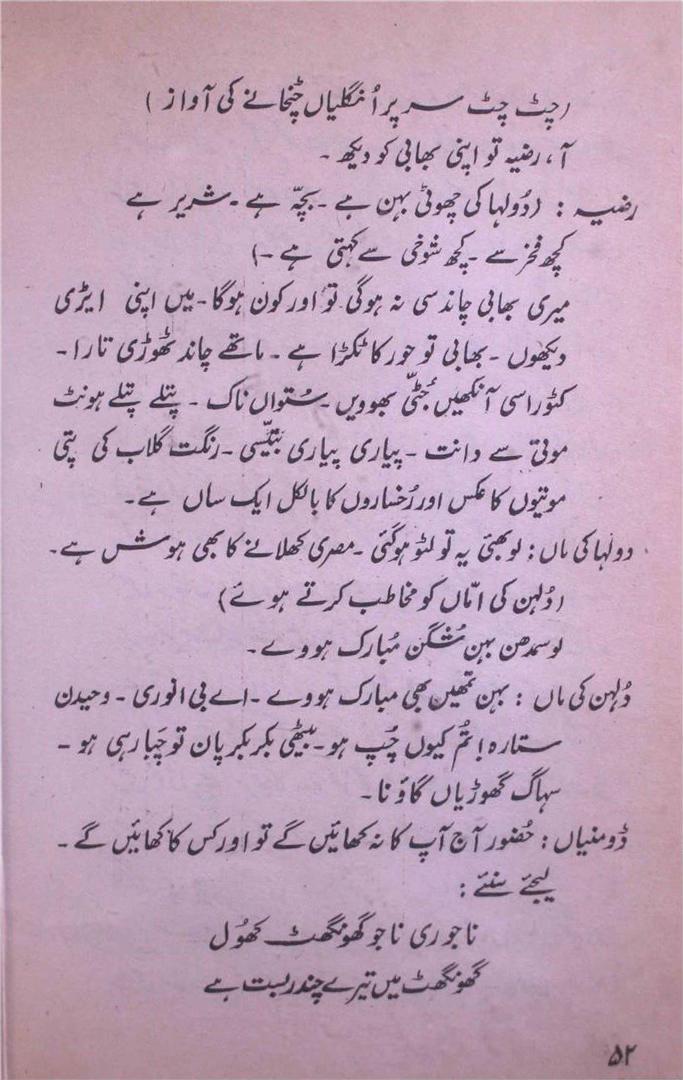 (چٹ چٹ سر پر اُنگلیاں چٹخانے کی آواز)
آ، رضیہ تو اپنی بھابی کو دیکھ ۔
رضیہ : (دُولہا کی چھوٹی بہن ہے ۔ بچّہ ہے ۔ شریر ہے
کچھ فخز سے ۔ کچھ شوخی سے کہتی ہے ۔)
میری بھابی چاند سی نہ ہوگی تو اور کون ہوگا ۔ میں اپنی ایڑی
دیکھوں ۔ بھابی تو حور کا ٹکڑا ہے ۔ ماتھے چاند ٹھوڑی تارا ۔
کٹورا سی آنکھیں جُٹّی بھوویں ۔ سُتواں ناک ۔ پتلے پتلے ہونٹ
موتی سے دانت ۔ پیاری پیاری بتّیسی ۔ رنگت گلاب کی پتی
موتیوں کا عکس اور رُخساروں کا بالکل ایک ساں ہے ۔
دولہا کی ماں : لو بھئی یہ تو لٹو ہوگئی ۔ مصری کھلانے کا بھی ہوش ہے ۔
(دُلہن کی امّاں کو مخاطب کرتے ہوئے)
لو سمدھن بہن شُگن مُبارک ہووے ۔
دُلہن کی ماں : بہن تمھیں بھی مبارک ہووے ۔ اے بی انوری ۔ وحیدن
ستارہ ! تُم کیوں چُپ ہو ۔ بیٹھی بکر بکر پان تو چَبا رہی ہو ۔
سہاگ گھوڑیاں گاؤ نا ۔
ڈومنیاں : حُضور آج آپ کا نہ کھائیں گے تو اور کس کا کھائیں گے ۔
لیجئے سنئے :
ناجو ری ناجو گھونگھٹ کھُول
گھونگھٹ میں تیرے چندر بست ہے
۵۲